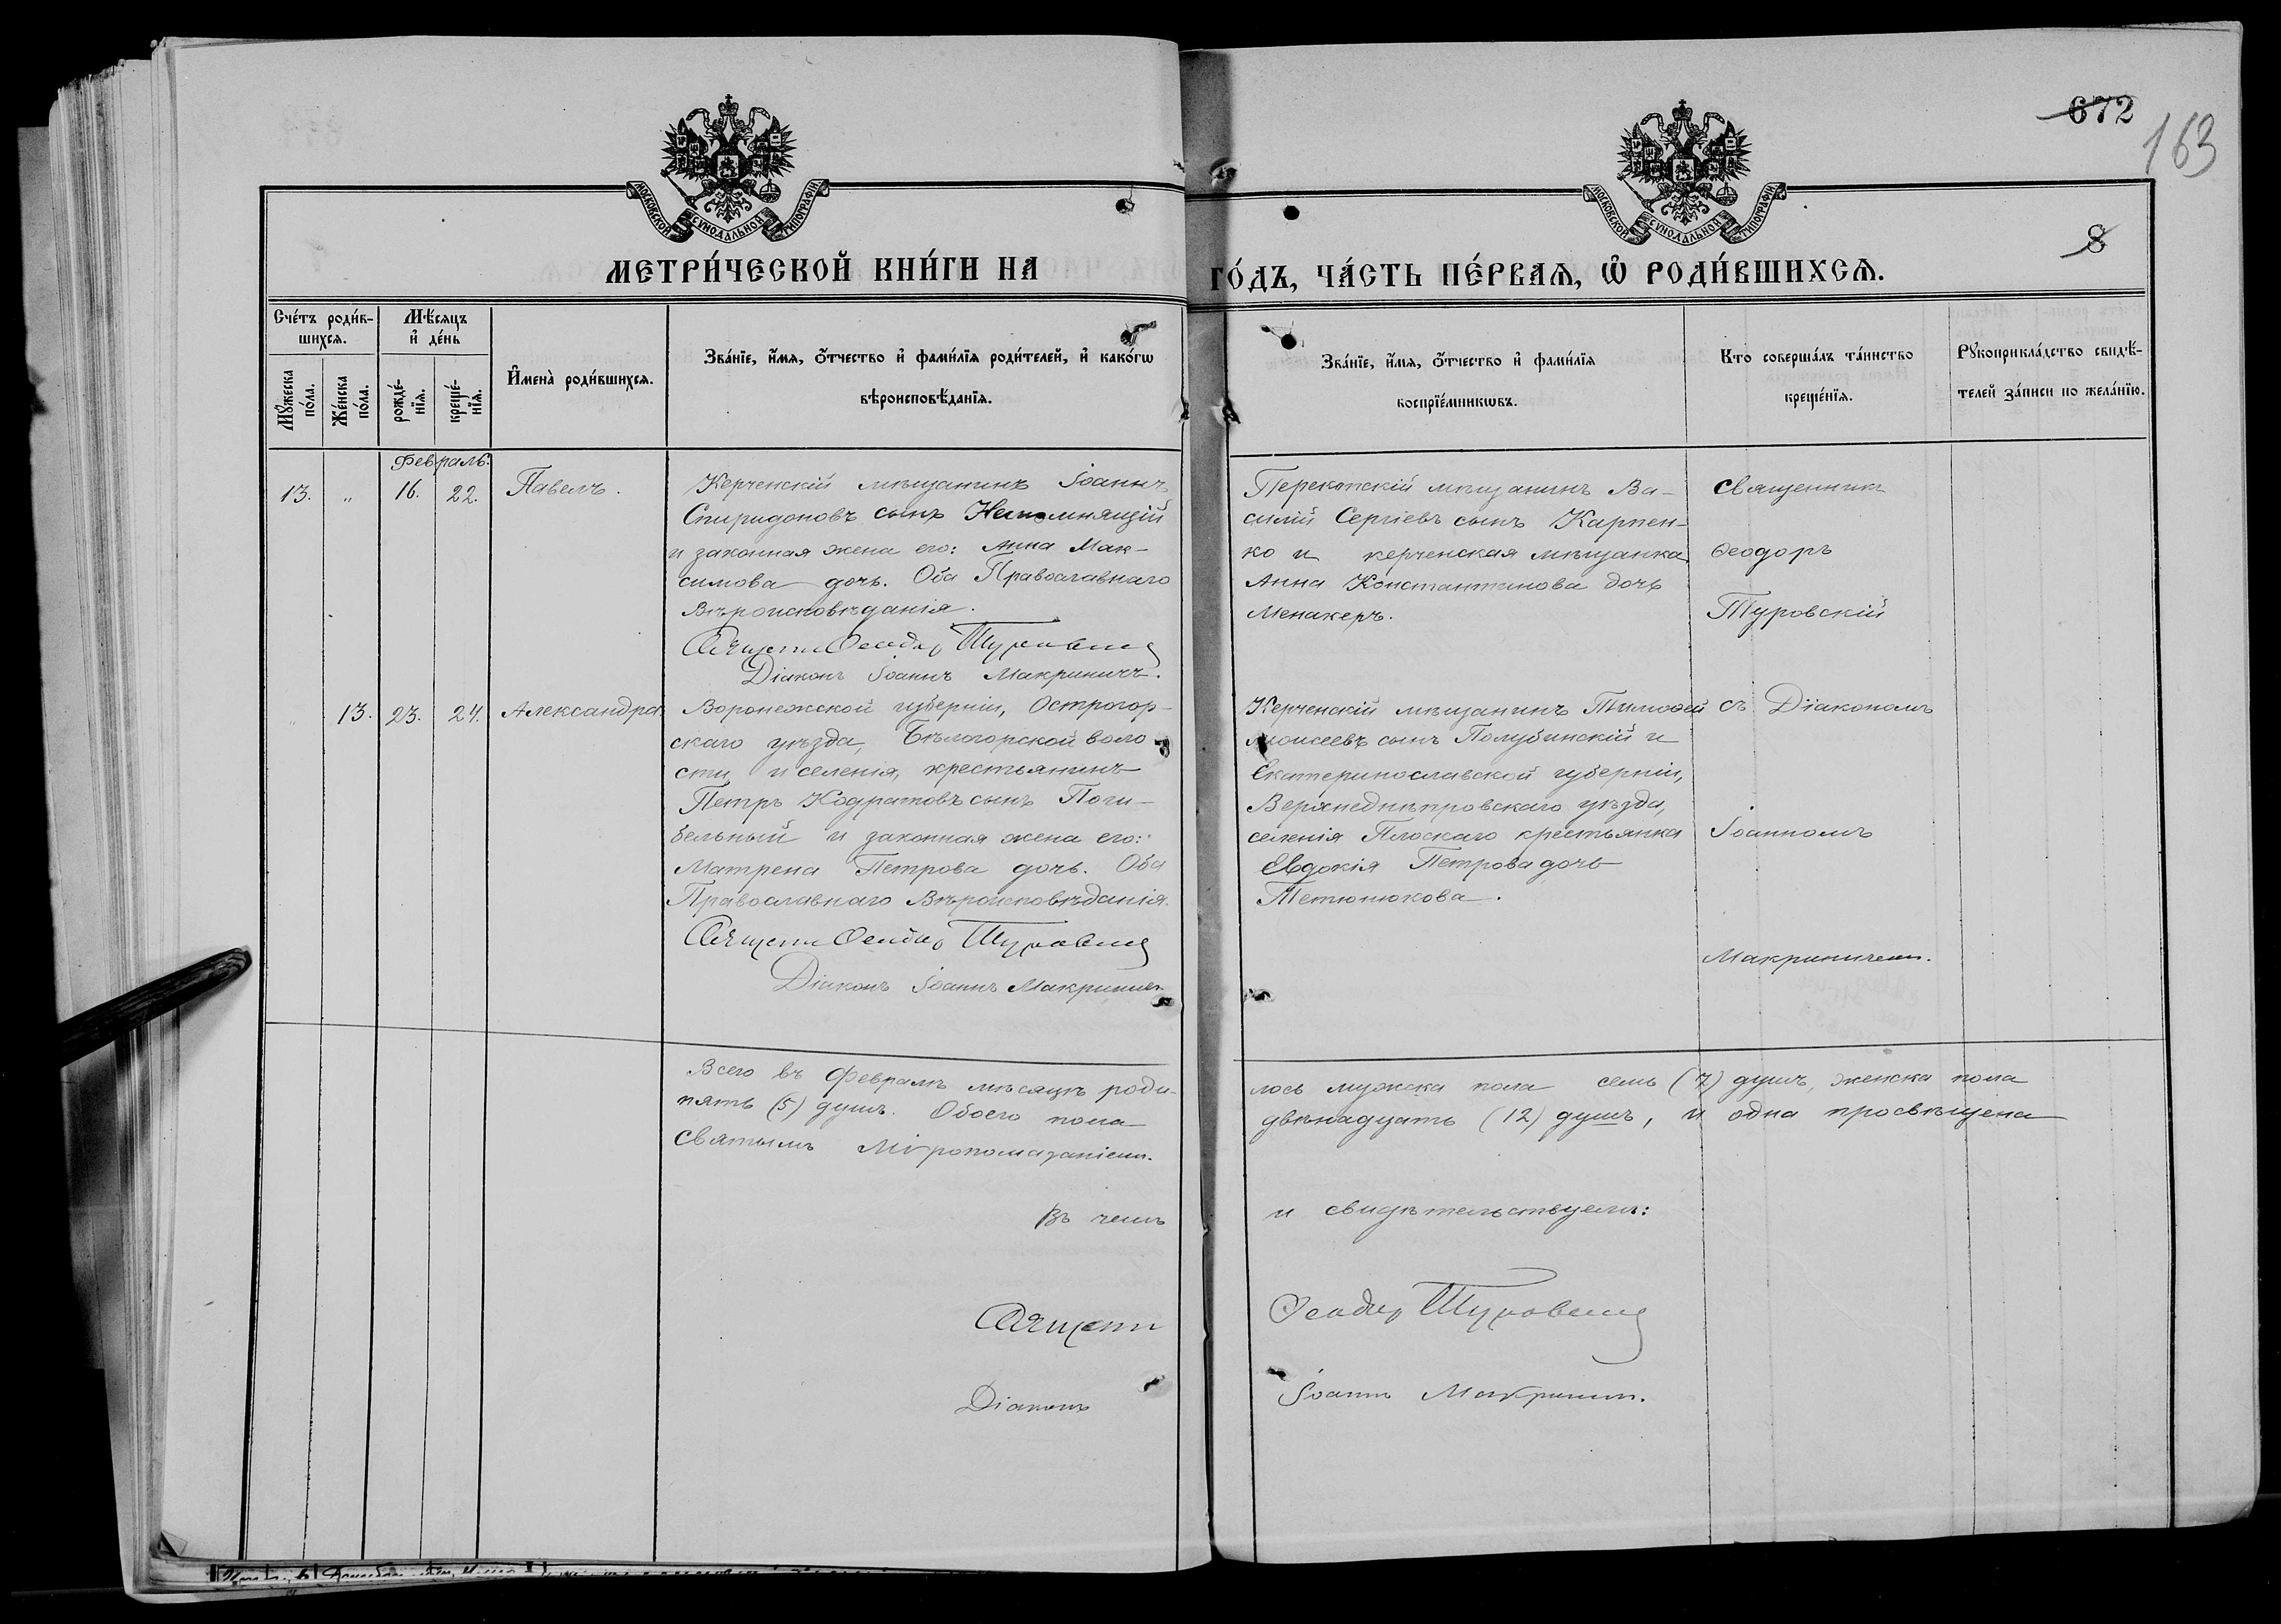 672
163
МОСКОВСКОЙ СУНОДАЛЬНОЙ ТИПОГРАФІИ
МОСКОВСКОЙ СУНОДАЛЬНОЙ ТИПОГРАФІИ
8
МЕТРИ́ЧЕСКОЙ КНИ́ГИ НА ГО́ДЪ, ЧА́СТЬ ПЕ́РВАѦ, Ѡ҆ РОДИ́ВШИХСѦ.
Сче́тъ роди́в-
шихсѧ.
Мꙋ́жеска по́ла.
Же́нска по́ла.
Мѣ́сѧцъ
и҆ де́нь
рожде́-
нїѧ.
креще́-
нїѧ.
И҆мена̀ роди́вшихсѧ.
Зва́нїе, и҆́мѧ, ѻ҆́тчество и҆ фами́лїѧ роди́телей, и҆ како́гѡ
вѣроисповѣ́данїѧ.
Зва́нїе, и҆́мѧ, ѻ҆́тчество и҆ фами́лїѧ
воспрїе́мникѡвъ.
Кто соверша́лъ та́инство
креще́нїѧ.
Рꙋкоприкла́дство свидѣ́-
телей за́писи по жела́нїю.
Февраль:
13. " 16. 22. Павелъ.
Керченскій мѣщанинъ Іоаннъ
Спиридоновъ сынъ Непомнящій
и законная жена его: Анна Мак-
симова дочь. Оба Православнаго
Вѣроисповѣданія.
Священ Феодоръ Туровскій
Діаконъ Іоаннъ Макриничъ.
Перекопскій мѣщанинъ Ва-
силій Сергіевъ сынъ Карпен-
ко и керченская мѣщанка
Анна Константинова дочь
Менакеръ.
Священник
Ѳеодоръ
Туровскій
" 13. 23. 24. Александра.
Воронежской губерніи, Острогор-
скаго уѣзда, Бѣлогорской воло
сти и селенія, крестьянинъ
Петръ Кодратовъ сынъ Поги-
бельный и законная жена его:
Матрена Петрова дочь. Оба
Православнаго Вѣроисповѣданія.
Священ Феодоръ Туровскій
Діаконъ Іоаннъ Макриничъ
Керченскій мѣщанинъ Тимоѳей
Моисеевъ сынъ Полубинскій и
Екатеринославской губерніи,
Верхнеднѣпровскаго уѣзда,
селенія Плоскаго крестьянка
Евдокія Петрова дочь
Тетюнюкова.
съ Діакономъ
Іоанномъ
Макриничем.
Всего въ Февралѣ мѣсяцѣ роди-лось мужска пола семь (7) душъ, женска пола
пять (5) душъ. Обоего пола двѣнадцать (12) душъ, и одна просвѣщена
святымъ Мѵропомазаніемъ.
Въ чемъ и свидѣтельствуемъ:
Священ Феодоръ Туровскій
Діаконъ Іоаннъ Макринич.